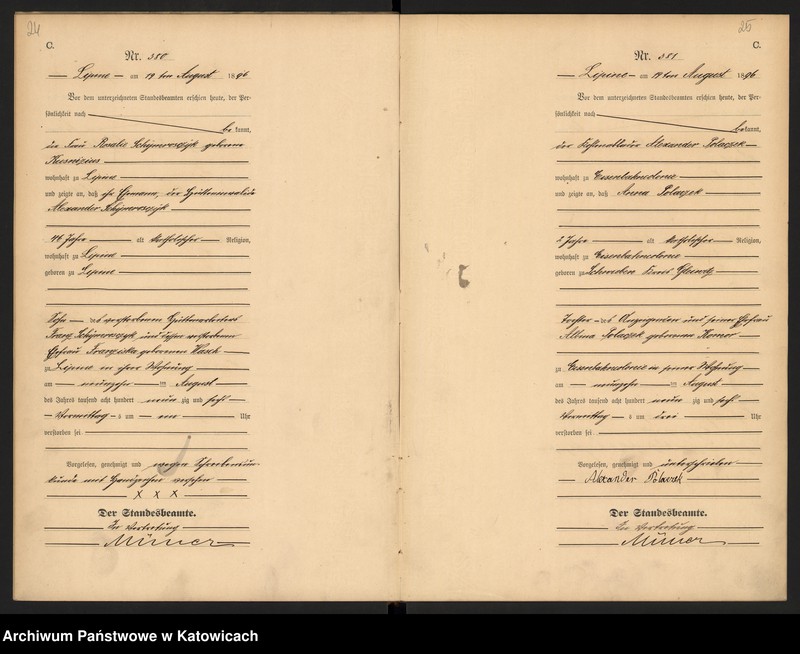 24
C.
Nr. 380
Lipine am 19 ten August 1896
Vor dem unterzeichneten Standesbeamten erschien heute, der Per-
sönlichkeit nach
be kannt,
die Frau Rosalie geborene
wohnhaft zu Lipine
und zeigte an, daß ihr Ehemann, der
Alexander
46 Jahre alt katholischer Religion,
wohnhaft zu Lipine
geboren zu Lipine
Sohn des verstorbenen Hüttenarbeiters
Franz und dessen verstorbenen
Ehefrau Franziska geborenen Hasch
zu Lipine in ihrer Wohnung
am neunzehn ten August
des Jahres tausend acht hundert neun zig und sechs
Vormittag s um ein Uhr
verstorben sei
Vorgelesen, genehmigt und wegen Schreibensun-
kunde mit Handzeichen versehen
X X X
Der Standesbeamte.
In Vertretung
Müller
25
C.
Nr. 381
Lipine am 19 ten August 1896
Vor dem unterzeichneten Standesbeamten erschien heute, der Per-
sönlichkeit nach
be kannt,
der Alexander Polaczek
wohnhaft zu
und zeigte an, daß Anna Polaczek
2 Jahre alt katholischer Religion,
wohnhaft zu
geboren zu Kreis
Tochter des Anzeigenden und seiner Ehefrau
Albina Polaczek geborenen Komor
zu in seiner Wohnung
am neunzehn ten August
des Jahres tausend acht hundert neun zig und sechs
Vormittag s um drei Uhr
verstorben sei
Vorgelesen, genehmigt und unterschrieben
Alexander Polaczek
Der Standesbeamte.
In Vertretung
Müller
Archiwum Państwowe w Katowicach